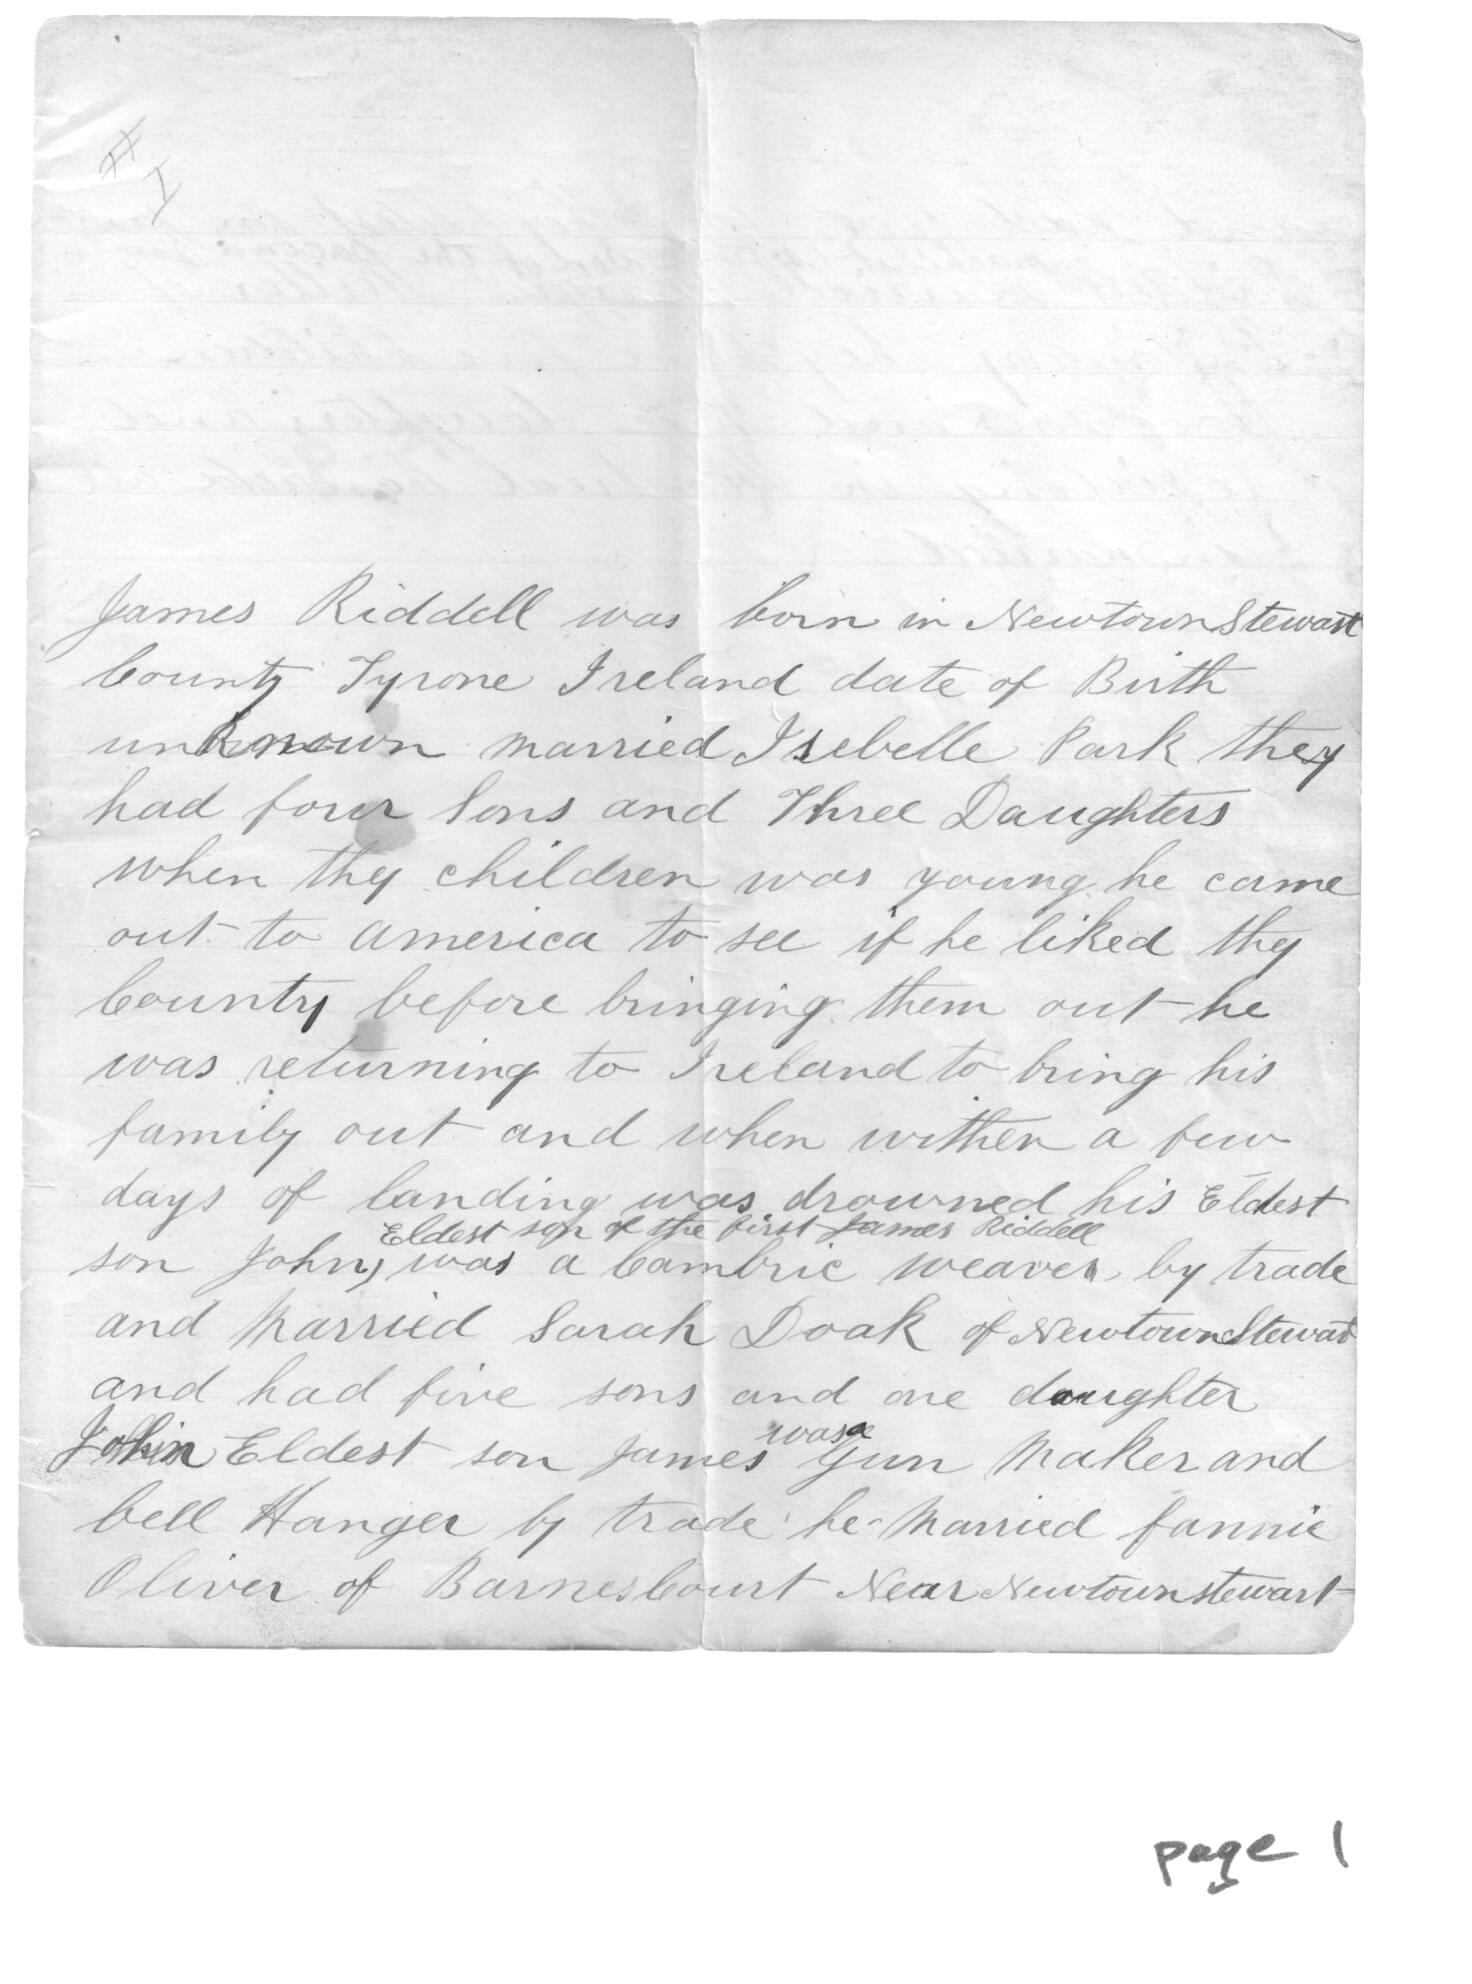 # I
James Riddell was born in NewtownStewart
County Tyrone Ireland date of Birth
unknown married Isebelle Park they
had four Sons and Three Daughters
when thy children was young he came
out to america to see if he liked thy
County before bringing them out he
was returning to Ireland to bring his
family out and when withen a few
days of landing was drowned his Eldest
Eldest son of the first James Riddell
son John, was a Cambric weaver by trade
and Married Sarah Doak of NewtownStewart
and had five sons and one daughter
was a
John Eldest son James Gun Maker and
bell Hanger by trade he Married fannie
Oliver of BarnesCourt Near Newtownstewart
page 1